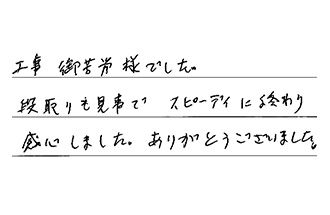 工事 御苦労様でした。
段取りも見事で スピーディに終わり
感心しました。ありがとうございました。